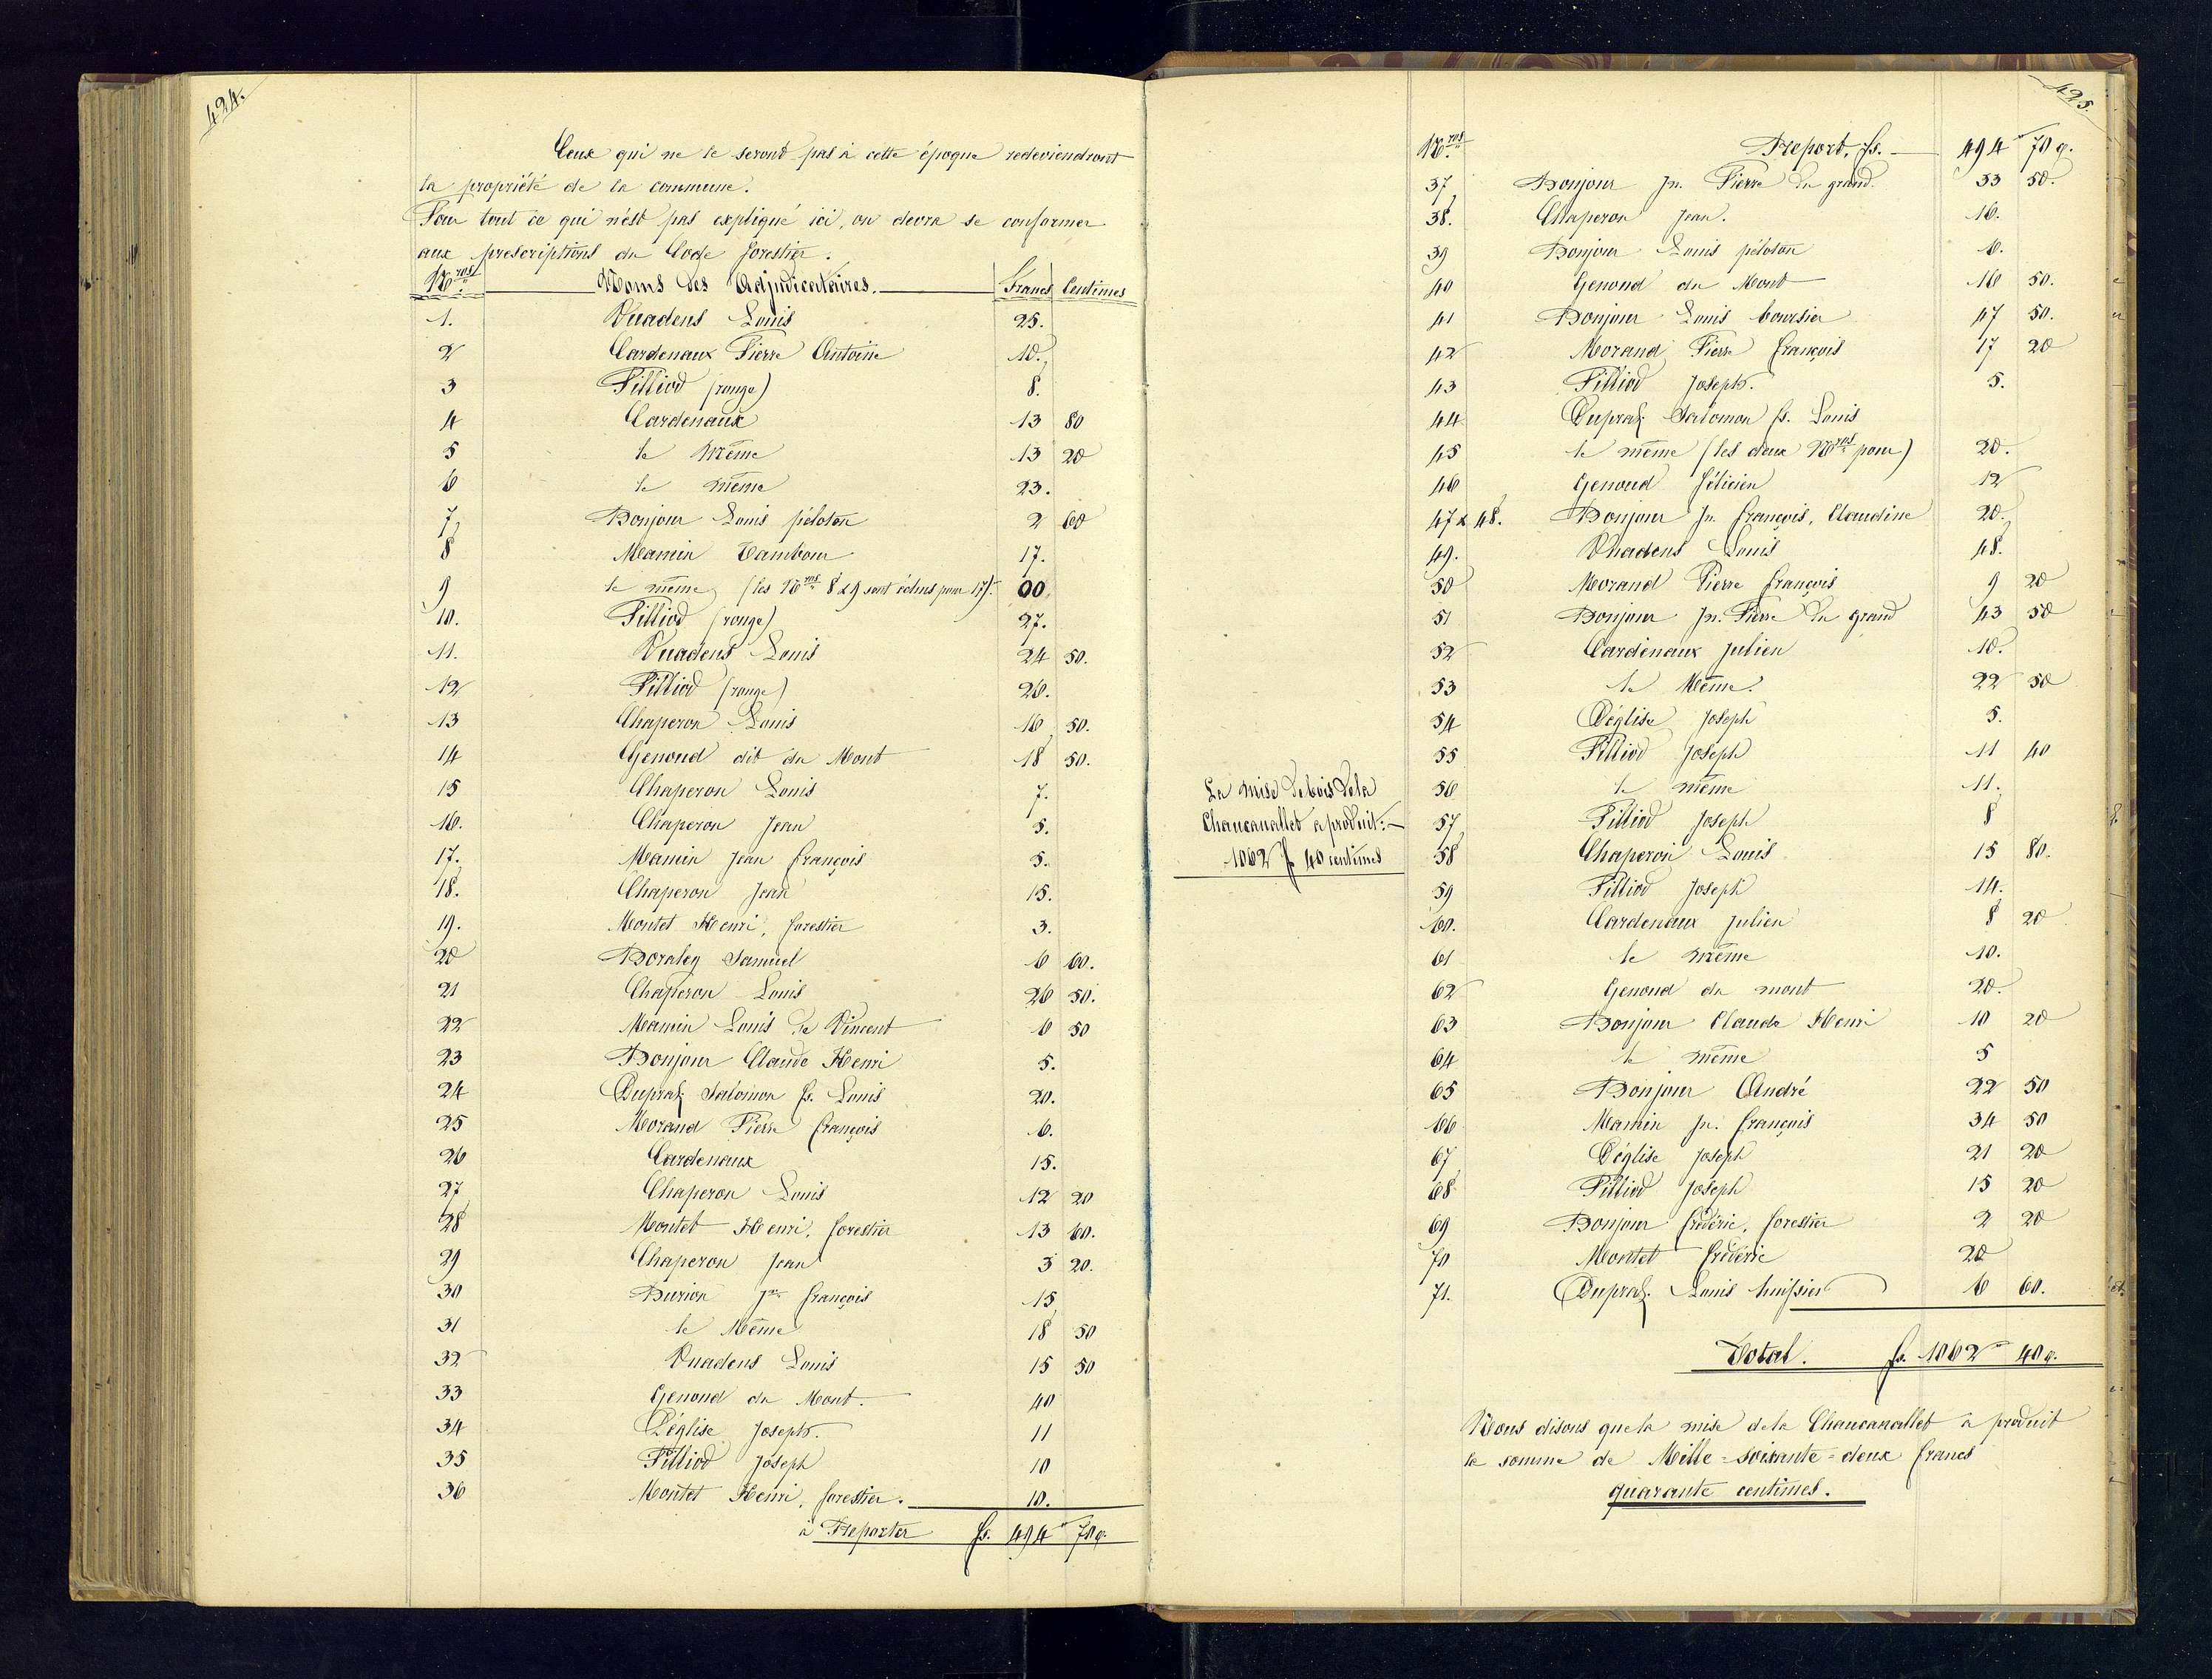 424.
Ceux qui ne le seront pas à cette époque redeviendront
la propriété de la commune.
Pour tout ce qui n'est pas expliqué ici, on devra se conformer
aux prescriptions du Code forestier.
Nros Noms des Adjudicataires. Francs Centimes
1. Vuadens Louis 25.
2 Cardenaux Pierre Antoine 10.
3 Pilliod (rouge) 8.
4 Cardenaux 13 80
5 le même 13 20
6 le même 23.
7 Bonjour Louis péloton 2 60
8 Mamin Tambour 17.
9 le même (les Nros 8 & 9 sont échus pour 17). 00
10. Pilliod (rouge) 27.
11. Vuadens Louis 24 50.
12 Pilliod (rouge) 26.
13 Chaperon Louis 16 50.
14 Genoud dit du Mont 18 50.
15 Chaperon Louis 7.
16. Chaperon Jean 5.
17. Mamin Jean François 5.
18. Chaperon Jean 15.
19. Montet Henri, forestier 3.
20 Boraley Samuel 6 60.
21 Chaperon Louis 26 50.
22 Mamin Louis de Vincent 6 50
23 Bonjour Claude Henri 5.
24 Dupraz Salomon fs. Louis 20.
25 Morand Pierre François 6.
26 Cardenaux 15.
27 Chaperon Louis 12 20
28 Montet Henri, forestier 13 60.
29 Chaperon Jean 3 20.
30 Burion Jn François 15
31 le Même 18 50
32 Vuadens Louis 15 50
33 Genoud du Mont. 40
34 Déglise Joseph. 11
35 Pilliod Joseph 10
36 Montet Henri, forestier. 10.
à Reporter fs. 494 70 c.
425.
Nros Report, fs. 494 70 c.
37 Bonjour Jn. Pierre du grand. 33 50.
38. Chaperon Jean. 16.
39 Bonjour Louis péloton 6.
40 Genoud du Mont 16 50.
41 Bonjour Louis boursier 47 50.
42 Morand Pierre François 17 20
43 Pilliod Joseph. 5.
44 Dupraz Salomon fs. Louis
45 le même (les deux Nros pour) 20.
46 Genoud Félicien 12
47 & 48. Bonjour Jn. François, Claudine 20.
49. Vuadens Louis 48.
50 Morand Pierre François 9 20
51 Bonjour Jn. Pierre du grand 43 50
52 Cardenaux Julien 10.
53 le Même. 22 50
54 Déglise Joseph 5.
55 Pilliod Joseph 11 40
56 le même 11.
57 Pilliod Joseph 8
58 Chaperon Louis 15 80.
59 Pilliod Joseph 14.
60. Cardenaux Julien 8 20
61 le même 10.
62 Genoud du mont 20.
63 Bonjour Claude Henri 10 20
64 le même 5
65 Bonjour André 22 50
66 Mamin Jn. François 34 50
67 Déglise Joseph 21 20
68 Pilliod Joseph 15 20
69 Bonjour Frédéric, forestier 2 20
70 Montet Frédéric 20
71. Dupraz Louis huissier 6 60.
La mise de bois de la
Chaucanallet a produit:
1062 f 40 centimes
Total. fs. 1062 40 c.
Nous disons que la mise de la Chaucanallet a produit
la somme de Mille-soixante-deux francs
quarante centimes.